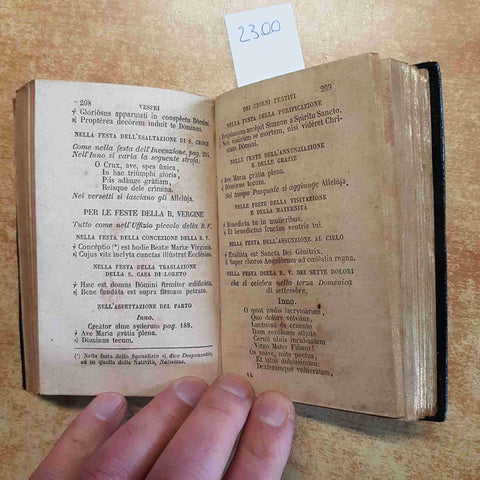 2300
208 VESPRI
℣ Gloriósus apparuísti in conspéctu Dómini.
℟ Proptérea decórem índuit te Dóminus.
NELLA FESTA DELL'ESALTAZIONE DI S. CROCE
Come nella festa dell'Invenzione, pag. 204.
Nell'Inno si varia la seguente strofa:
O Crux, ave, spes única,
In hac triúmphi glória,
Piis adáuge grátiam,
Reisque dele crímina.
Nei versetti si lasciano gli Allelúja.
PER LE FESTE DELLA B. VERGINE
Tutto come nell'Uffizio piccolo della B. V.
NELLA FESTA DELLA CONCEZIONE DELLA B. V.
℣ Concéptio (*) est hodie Beatæ Maríæ Vírginis.
℟ Cujus vita ínclyta cunctas illústrat Ecclésias.
NELLA FESTA DELLA TRASLAZIONE
DELLA S. CASA DI LORETO
℣ Hæc est domus Dómini fírmiter ædificáta.
℟ Bene fundáta est supra firmam petram.
NELL'ASPETTAZIONE DEL PARTO
Inno.
Creátor alme síderum pag. 188.
℣ Ave María grátia plena.
℟ Dóminus tecum.
(*) Nella festa dello Sposalizio si dice Desponsátio,
ed in quella della Natività, Natívitas.
DEI GIORNI FESTIVI 209
NELLA FESTA DELLA PURIFICAZIONE
℣ Respónsum accépit Símeon a Spíritu Sancto.
℟ Non visúrum se mortem, nisi vidéret Chri-
stum Dómini.
NELLE FESTE DELL'ANNUNZIAZIONE
E DELLE GRAZIE
℣ Ave María grátia plena.
℟ Dóminus tecum.
Nel tempo Pasquale si aggiunge Allelúja.
NELLE FESTE DELLA VISITAZIONE
E DELLA MATERNITÀ
℣ Benedícta tu in muliéribus.
℟ Et benedíctus fructus ventris tui.
NELLA FESTA DELL'ASSUNZIONE AL CIELO
℣ Exaltáta est Sancta Dei Génitrix.
℟ Super choros Angelórum ad cœléstia regna.
NELLA FESTA DELLA B. V. DEI SETTE DOLORI
che si celebra nella terza Domenica
di settembre.
Inno.
O quot undis lacrymárum,
Quo dolóre vólvitur,
Luctuósa de cruénto
Dum revúlsum stípite
Cernit ulnis incubántem
Virgo Mater Fílium!
Os suáve, mite pectus,
Et latus dulcíssimum
Dexterámque vulnerátam,